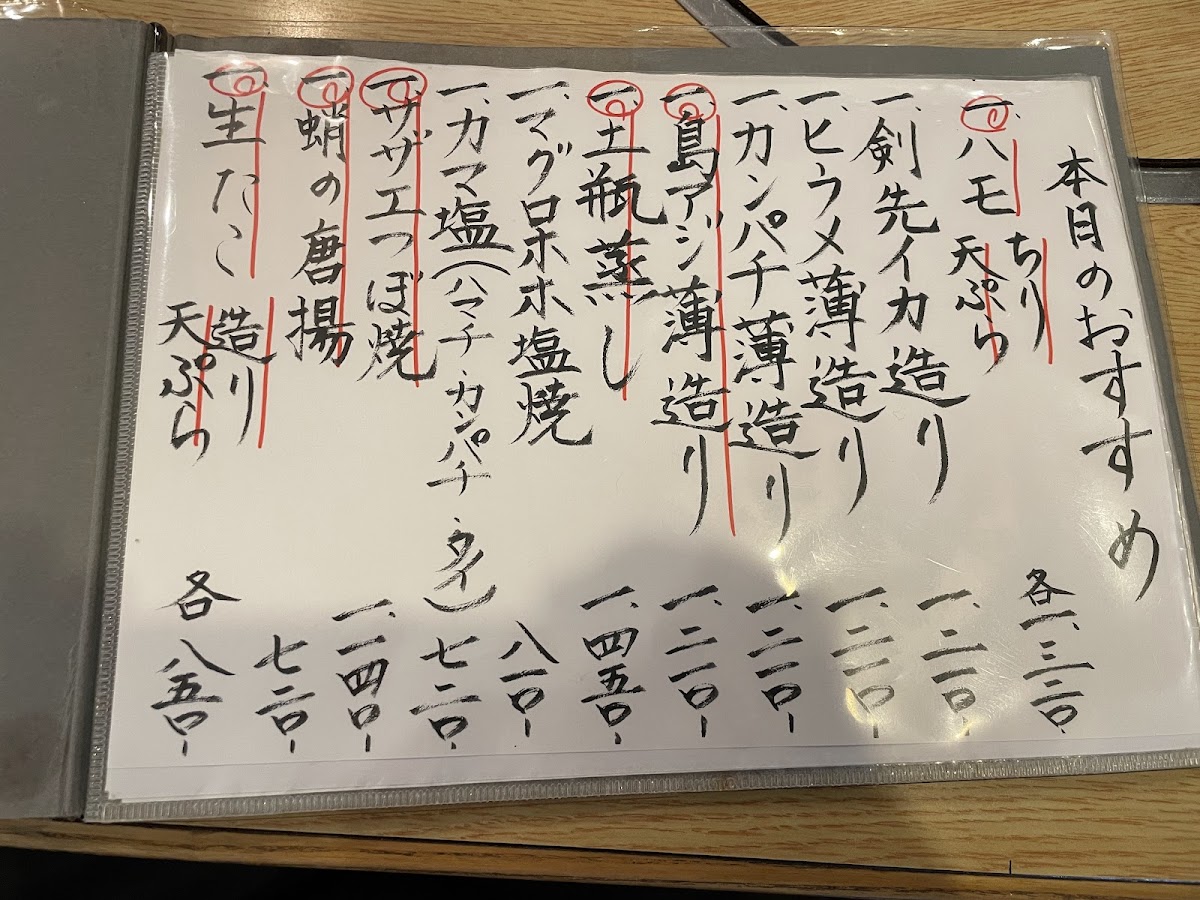 本日のおすすめ
一、ハモ ちり 天ぷら 各一、三二〇-
一、剣先イカ造り 一、二一〇-
一、ヒラメ薄造り 一、二一〇-
一、カンパチ薄造り 一、二一〇-
一、島アジ薄造り 一、二一〇-
一、土瓶蒸し 一、四五〇-
一、マグロホホ塩焼 八一〇-
一、カマ塩(ハマチ・カンパチ・タイ) 七二〇-
一、サザエつぼ焼 一、一四〇-
一、蛸の唐揚 七二〇-
一、生たこ 造り 天ぷら 各八五〇-